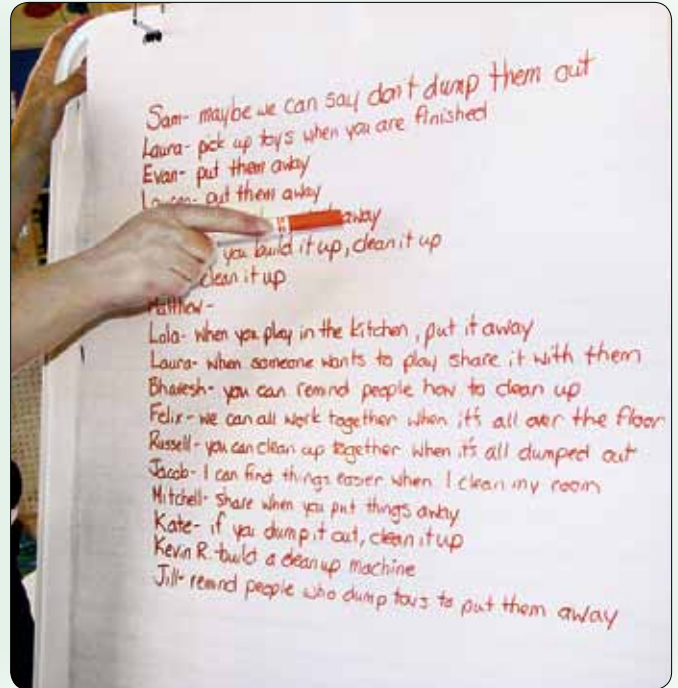 Sam- maybe we can say don't dump them out
Laura- pick up toys when you are finished
Evan- put them away
Lauren- put them away
away
you build it up, clean it up
clean it up
Matthew-
Lola- when you play in the kitchen, put it away
Laura- when someone wants to play share it with them
Bhavesh- you can remind people how to clean up
Felix- we can all work together when it's all over the floor
Russell- you can clean up together when it's all dumped out
Jacob- I can find things easier when I clean my room
Mitchell- share when you put things away
Kate- if you dump it out, clean it up
Kevin R.- build a clean up machine
Jill- remind people who dump toys to put them away